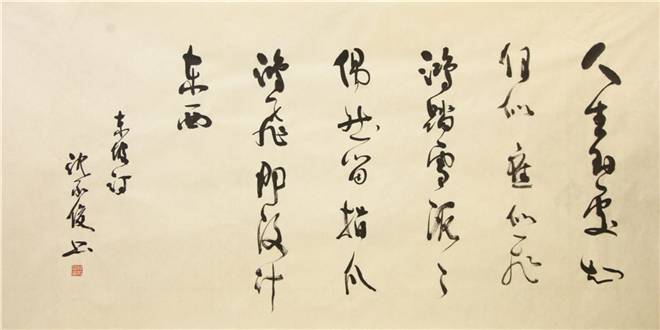 人生到处知
何似应似飞
鸿踏雪泥
偶然留指爪
鸿飞那复计
东西
东坡诗
俊书